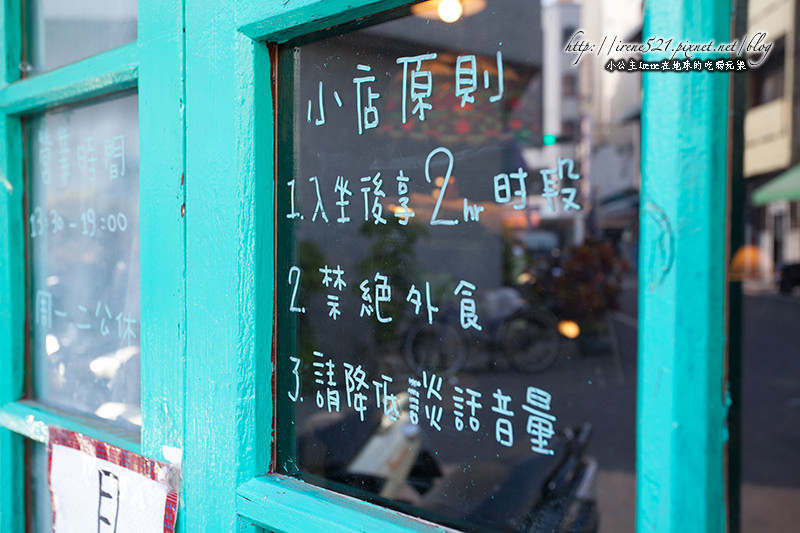 http://irene521.pixnet.net/blog
小公主Irene在地球的吃喝玩樂
營業時間
13:30-19:00
周一二公休
小店原則
1.入坐後享2hr時段
2.禁絕外食
3.請降低談話音量